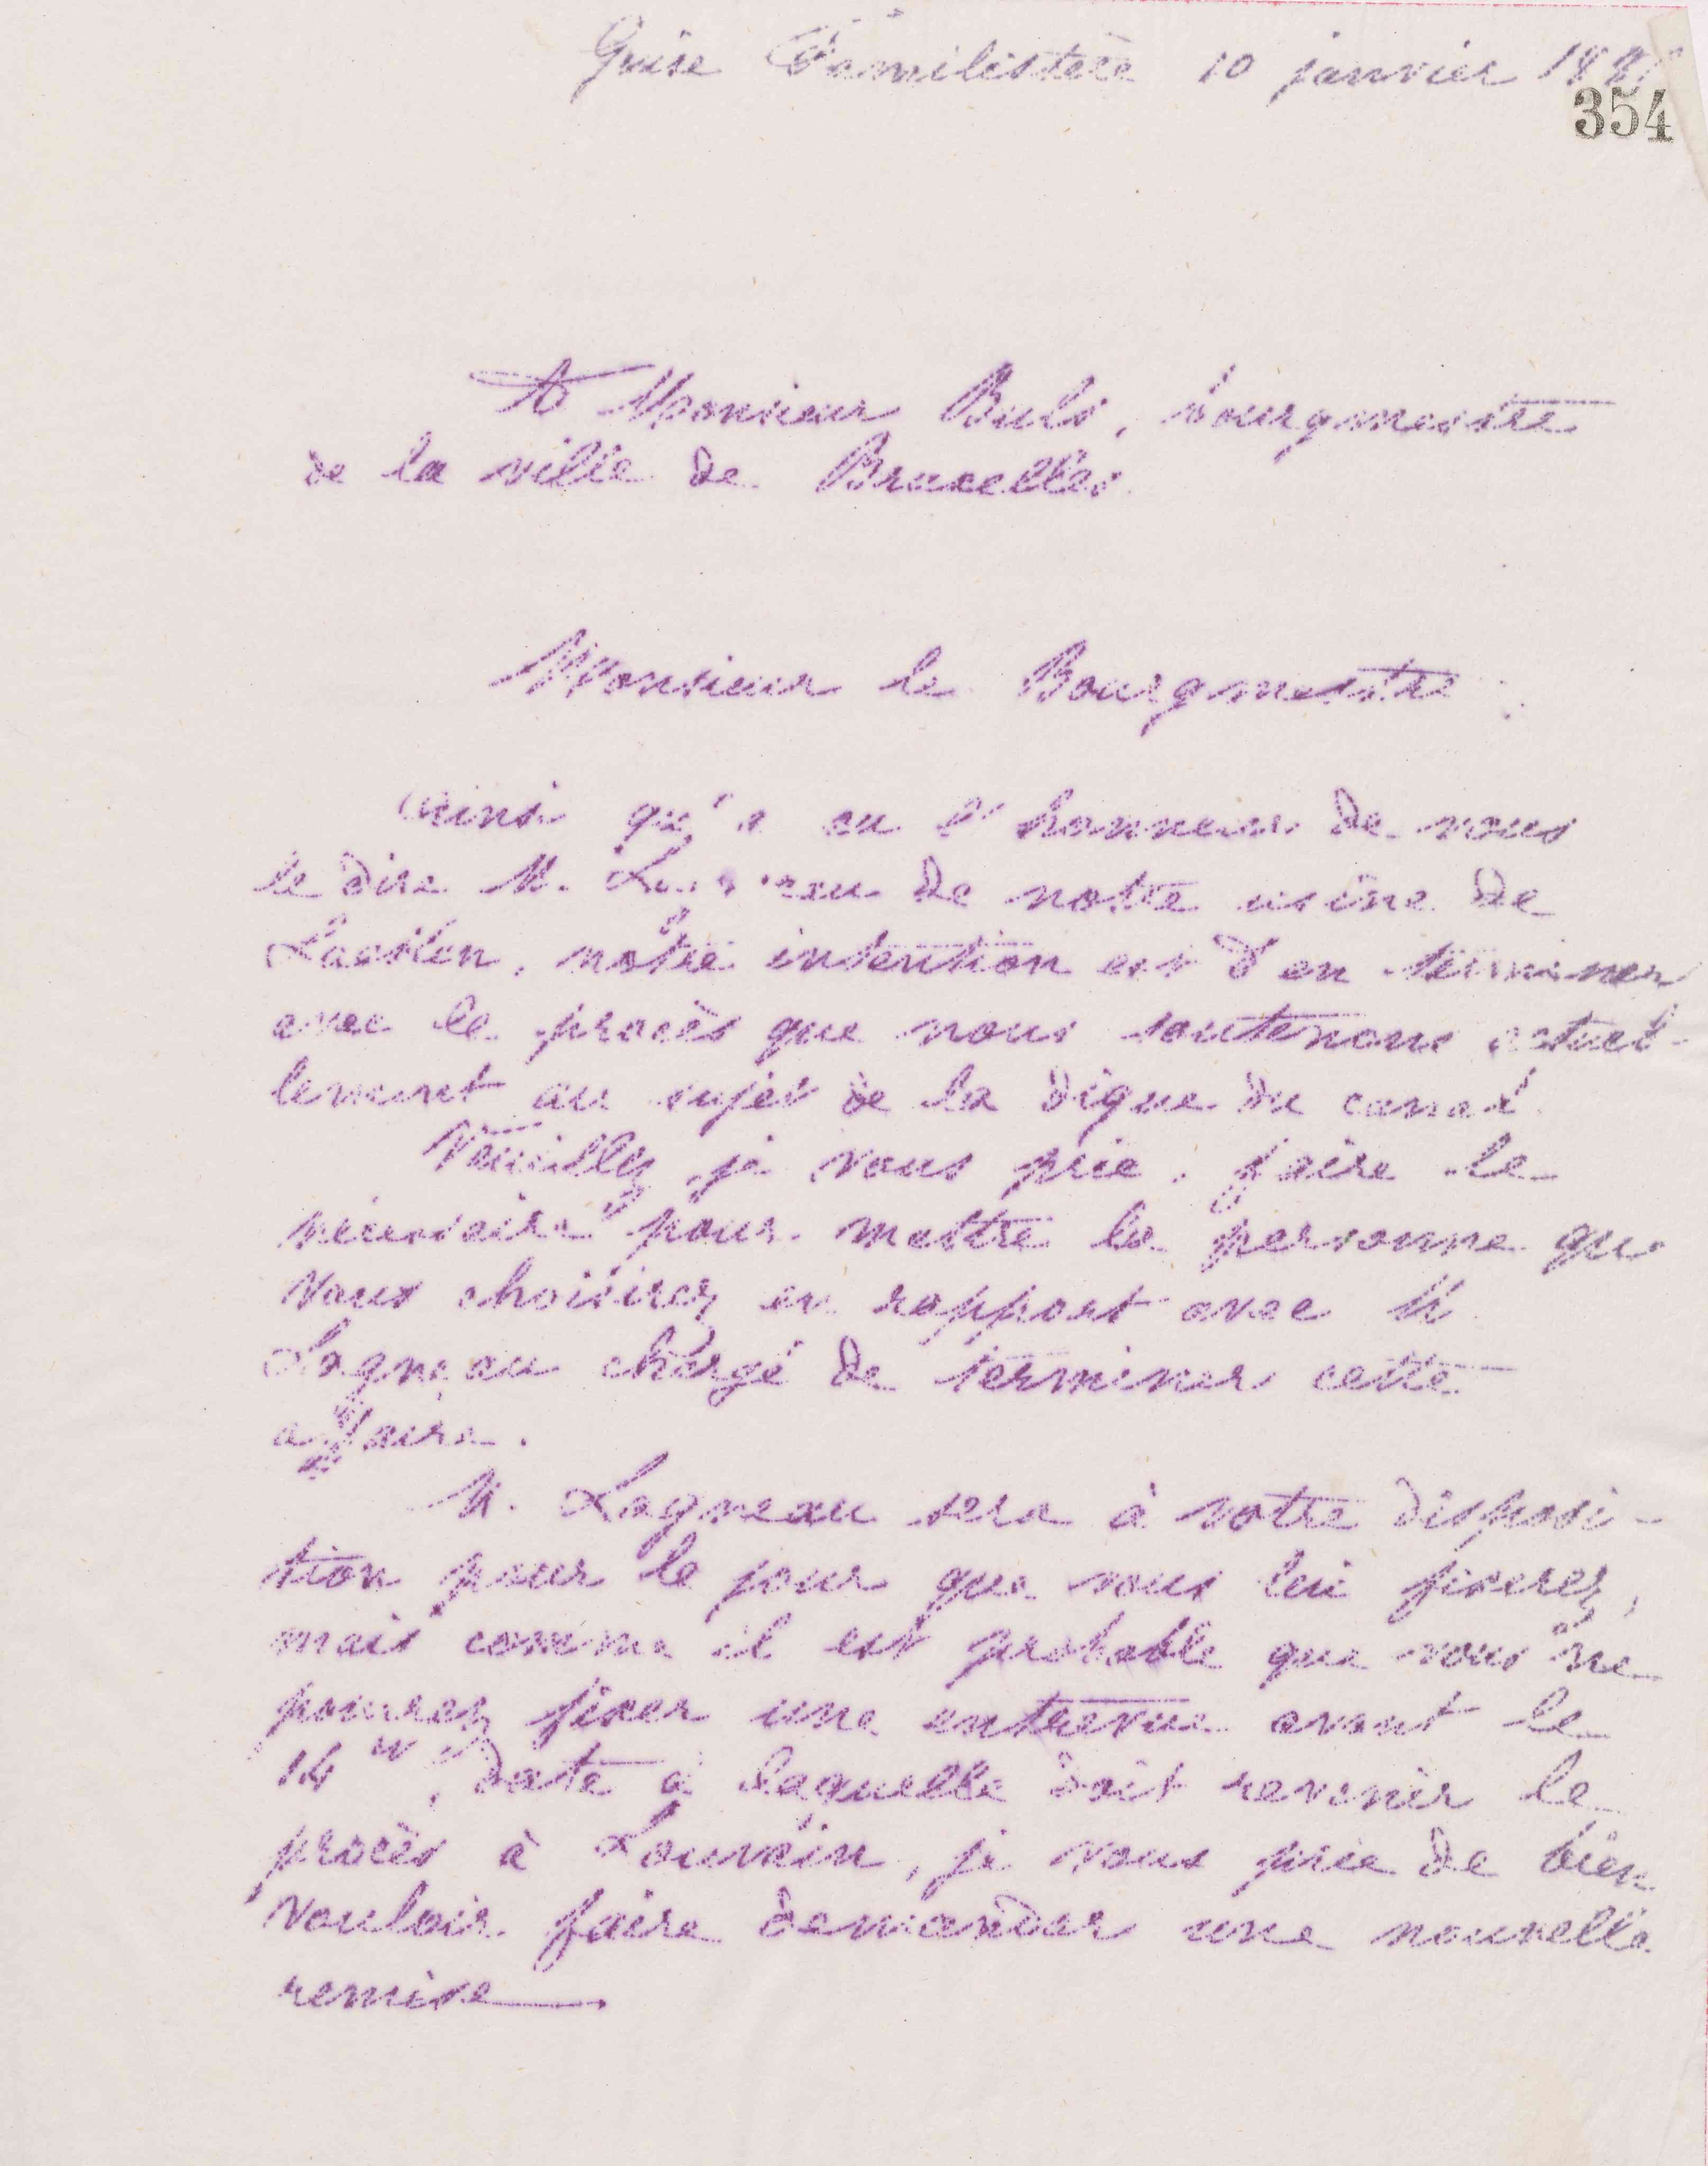 Guise Familistère 10 janvier
354
A Monsieur Buls, bourgmestre
de la ville de Bruxelles.
Monsieur le Bourgmestre :
Ainsi qu'a eu l'honneur de vous
le dire M. Lagneau de notre usine de
Laeken, notre intention est d'en terminer
avec le procès que nous soutenons actuel-
lement au sujet de la digue du canal.
Veuillez, je vous prie, faire le
nécessaire pour mettre la personne que
vous choisirez en rapport avec M.
Lagneau chargé de terminer cette
affaire.
M. Lagneau sera à votre disposi-
tion pour le jour que vous lui fixerez,
mais comme il est probable que vous ne
pourrez fixer une entrevue avant le
14, date à laquelle doit revenir le
procès à Louvain, je vous prie de bien
vouloir faire demander une nouvelle
remise